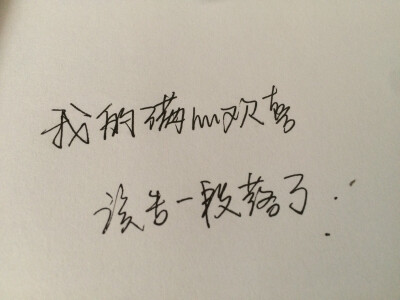 我的满心欢喜
该告一段落了...